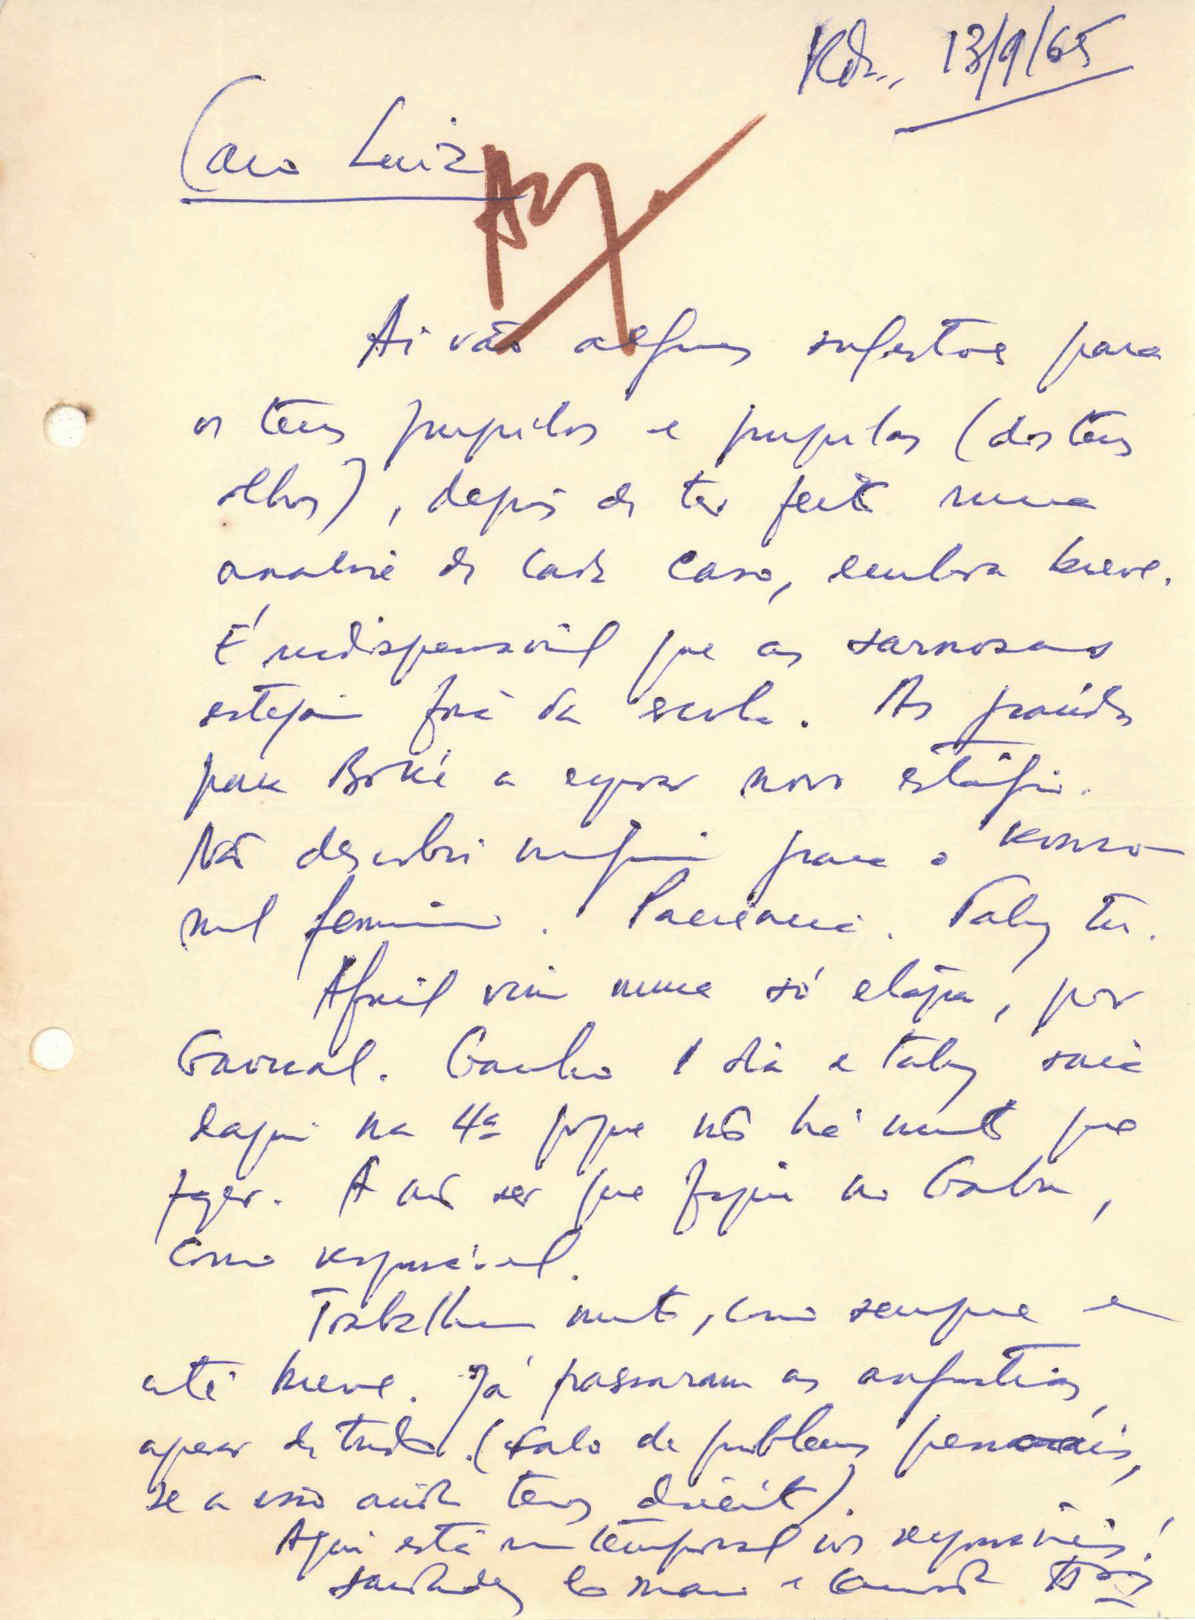 13/9/65
Caro Luiz
Aí vão algumas sugestões para
os teus pupilos e pupilas (dos teus
olhos), depois de ter feito uma
analise de cada caso, embora breve.
É indispensável que as sarnosas
estejam fora da escola. As grávidas
para Boké a esperar novo estágio.
Não descobri ninguém para o
feminino. Paciência. Talvez tu.
Afinal vim numa só etapa, por
Gaoual. Ganho 1 dia e talvez saia
daqui na 4ª porque não há muito que
fazer. A não ser que fique no Gabu,
como responsável.
Trabalhem muito, como sempre e
até breve. Já passaram as angústias,
apesar de tudo. (Falo de problemas pessoais,
se a isso ainda temos direito).
Aqui está um temporal dos responsáveis!
Saudades